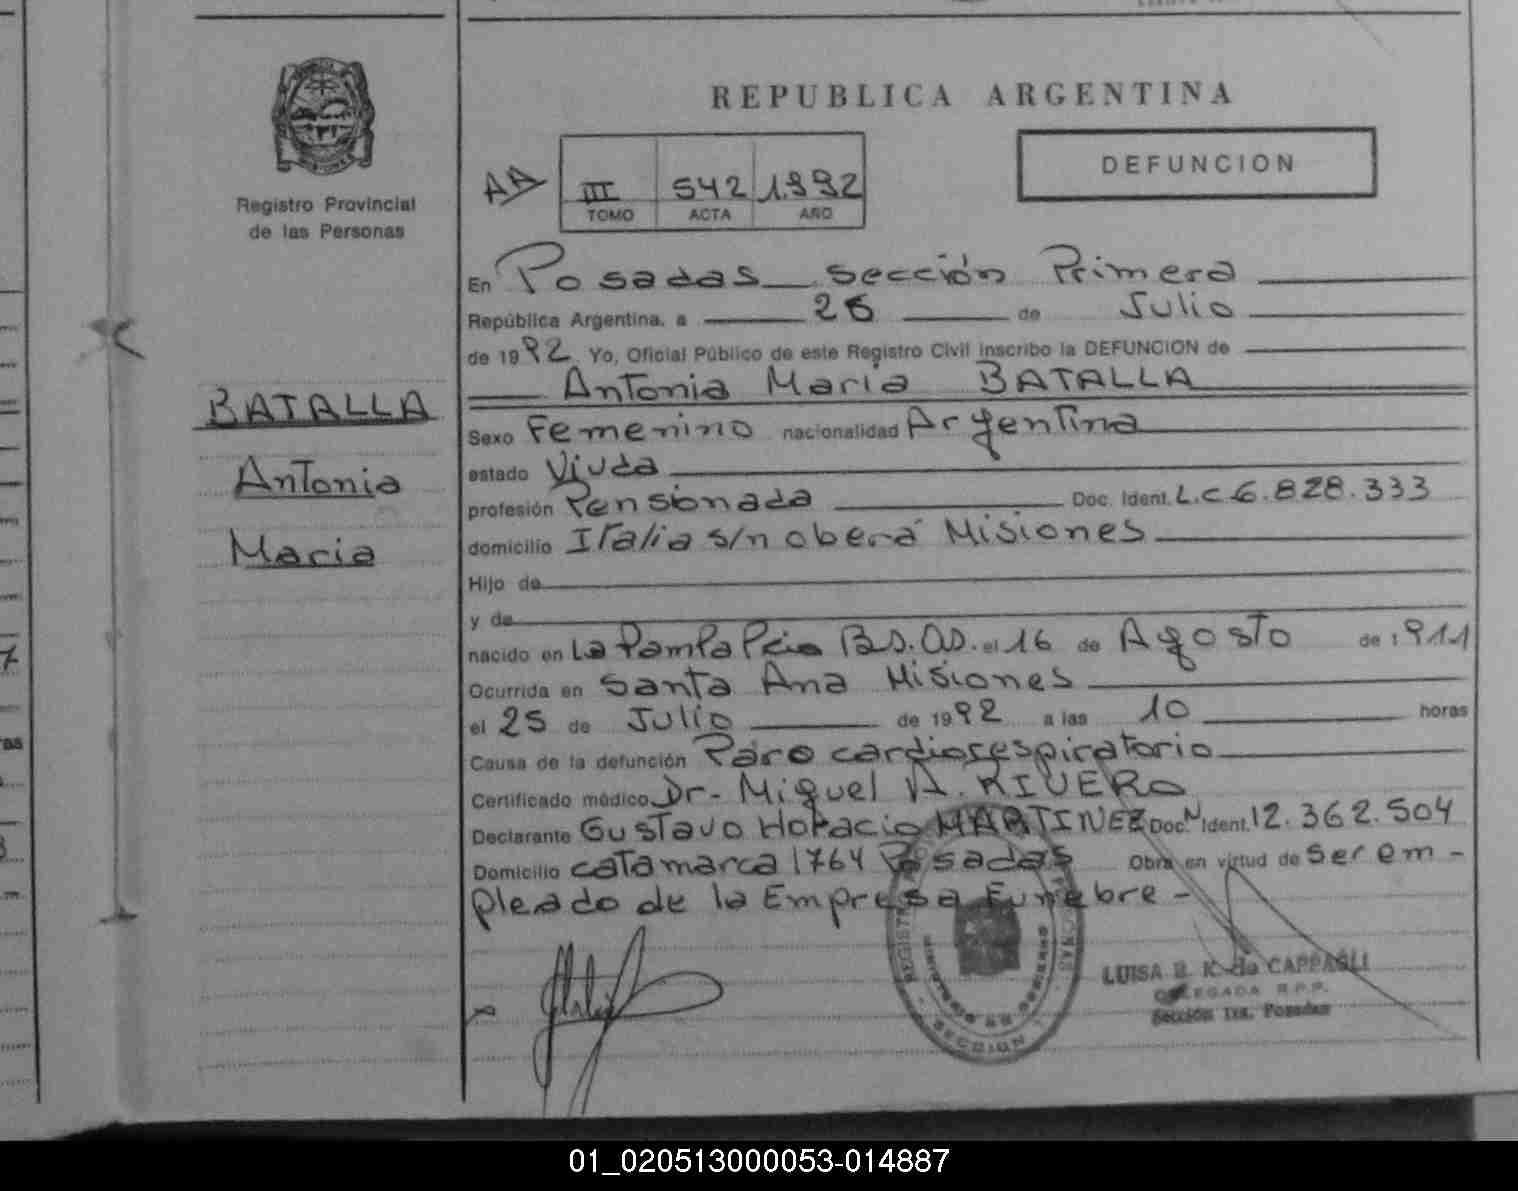 REPUBLICA ARGENTINA
Registro Provincial
de las Personas
AA
III 542 1.992
TOMO ACTA AÑO
DEFUNCION
BATALLA
Antonia
Maria
En Posadas sección Primera
República Argentina, a 25 de Julio
de 1992 Yo, Oficial Público de este Registro Civil inscribo la DEFUNCION de
Antonia Maria BATALLA
Sexo Femenino nacionalidad Argentina
estado Viuda
profesión Pensionada Doc. Ident. L.C 6.828.333
domicilio Italia s/n oberá Misiones
Hijo de
y de
nacido en La Pampa Pcia Bs. As. el 16 de Agosto de 1911
Ocurrida en Santa Ana Misiones
el 25 de Julio de 1992 a las 10 horas
Causa de la defunción Paro cardiorespiratorio
Certificado médico Dr- Miguel A. RIVERO
Declarante Gustavo Horacio MARTINEZ Doc. N Ident. 12.362.504
Domicilio catamarca 1764 Posadas Obra en virtud de ser em-
pleado de la Empresa Funebre-
LUISA E. K. de CAPPAGLI
DELEGADA R.P.P.
Sección 1ra. Posadas
SECCION
01_020513000053-014887